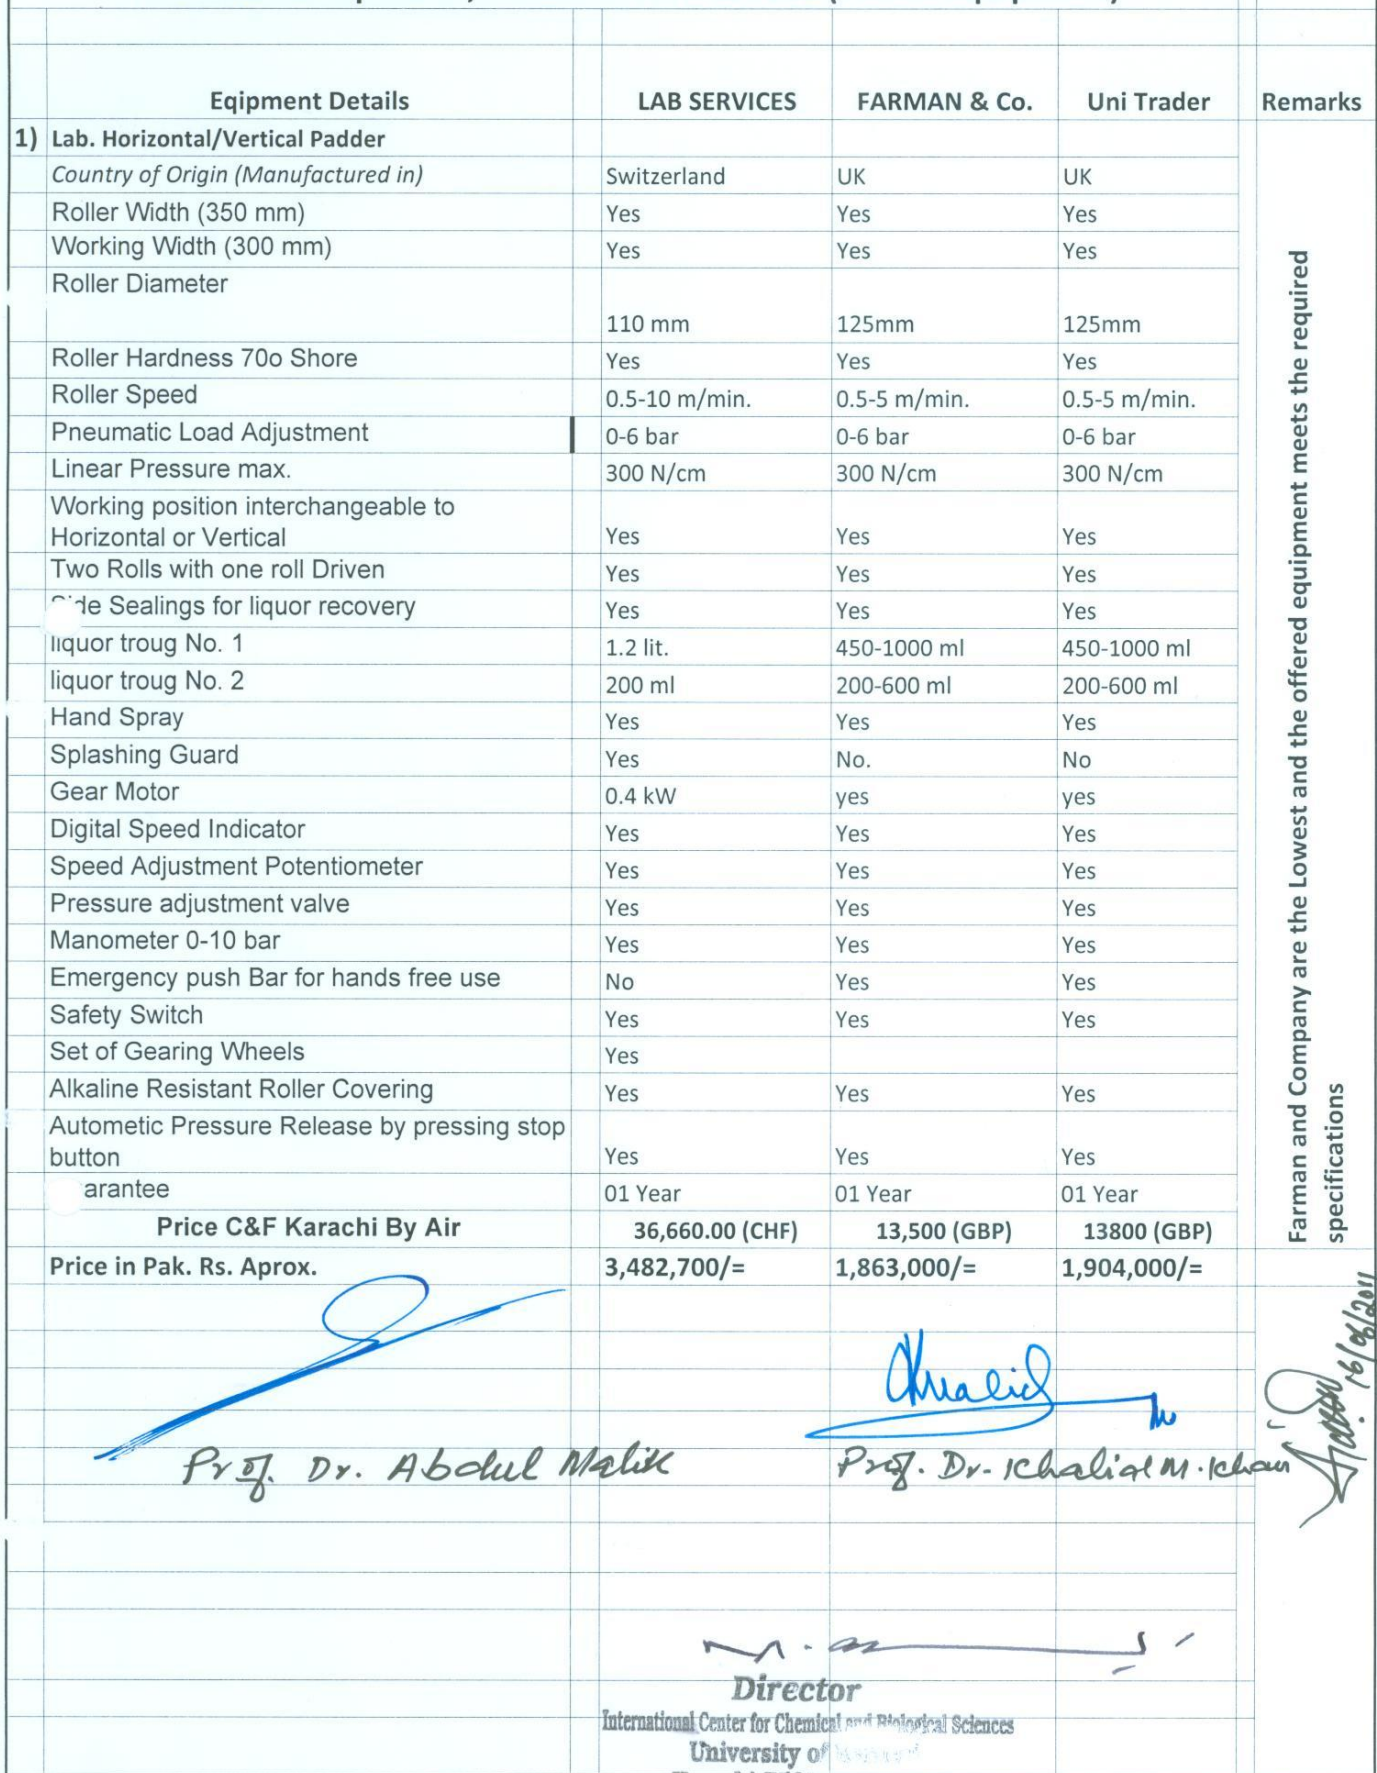 Eqipment Details LAB SERVICES FARMAN & Co. Uni Trader Remarks
1) Lab. Horizontal/Vertical Padder
Country of Origin (Manufactured in) Switzerland UK UK
Roller Width (350 mm) Yes Yes Yes
Working Width (300 mm) Yes Yes Yes
Roller Diameter 110 mm 125mm 125mm
Roller Hardness 70o Shore Yes Yes Yes
Roller Speed 0.5-10 m/min. 0.5-5 m/min. 0.5-5 m/min.
Pneumatic Load Adjustment 0-6 bar 0-6 bar 0-6 bar
Linear Pressure max. 300 N/cm 300 N/cm 300 N/cm
Working position interchangeable to
Horizontal or Vertical Yes Yes Yes
Two Rolls with one roll Driven Yes Yes Yes
Side Sealings for liquor recovery Yes Yes Yes
liquor troug No. 1 1.2 lit. 450-1000 ml 450-1000 ml
liquor troug No. 2 200 ml 200-600 ml 200-600 ml
Hand Spray Yes Yes Yes
Splashing Guard Yes No. No
Gear Motor 0.4 kW yes yes
Digital Speed Indicator Yes Yes Yes
Speed Adjustment Potentiometer Yes Yes Yes
Pressure adjustment valve Yes Yes Yes
Manometer 0-10 bar Yes Yes Yes
Emergency push Bar for hands free use No Yes Yes
Safety Switch Yes Yes Yes
Set of Gearing Wheels Yes
Alkaline Resistant Roller Covering Yes Yes Yes
Autometic Pressure Release by pressing stop
button Yes Yes Yes
arantee 01 Year 01 Year 01 Year
Price C&F Karachi By Air 36,660.00 (CHF) 13,500 (GBP) 13800 (GBP)
Price in Pak. Rs. Aprox. 3,482,700/= 1,863,000/= 1,904,000/=
Farman and Company are the Lowest and the offered equipment meets the required
specifications
Khalid
16/06/2011
Prof. Dr. Abdul Malik Prof. Dr. Khalid M. Khan
Director
International Center for Chemical and Biological Sciences
University of